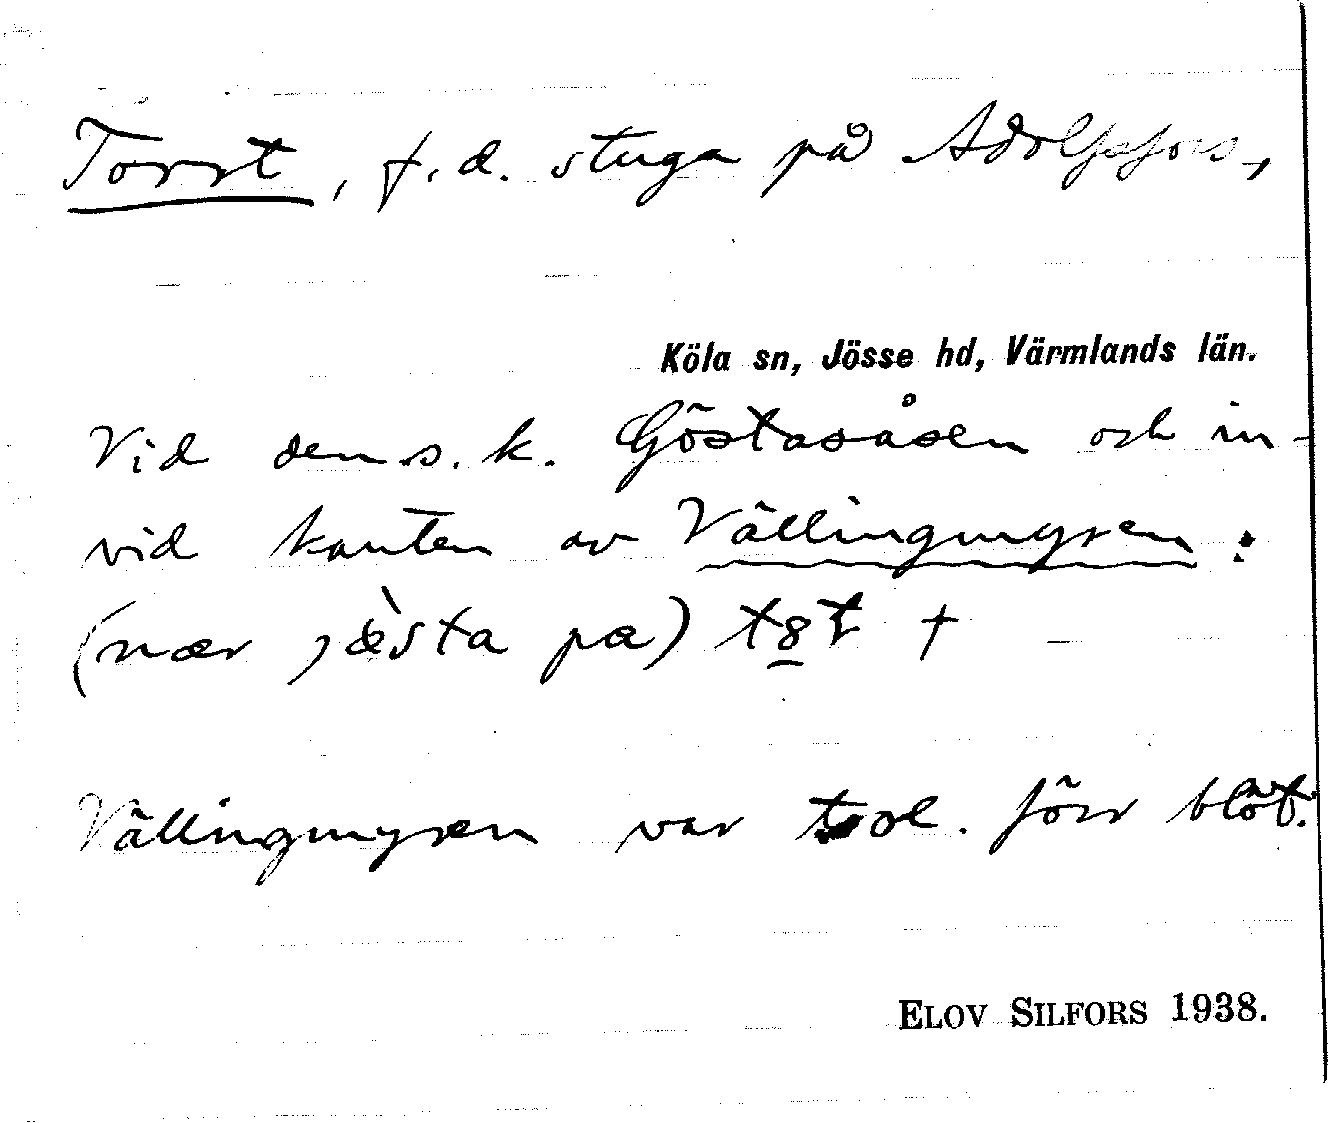 Torrt, f.d. stuga på Adolfsfors,
Köla sn, Jösse hd, Värmlands län.
Vid den s.k. Göstasåsen och in-
vid kanten av Vällingmyren:
(nær jæ̀sta pa) +
Vällingmyren var förr blöt.
ELOV SILFORS 1938.